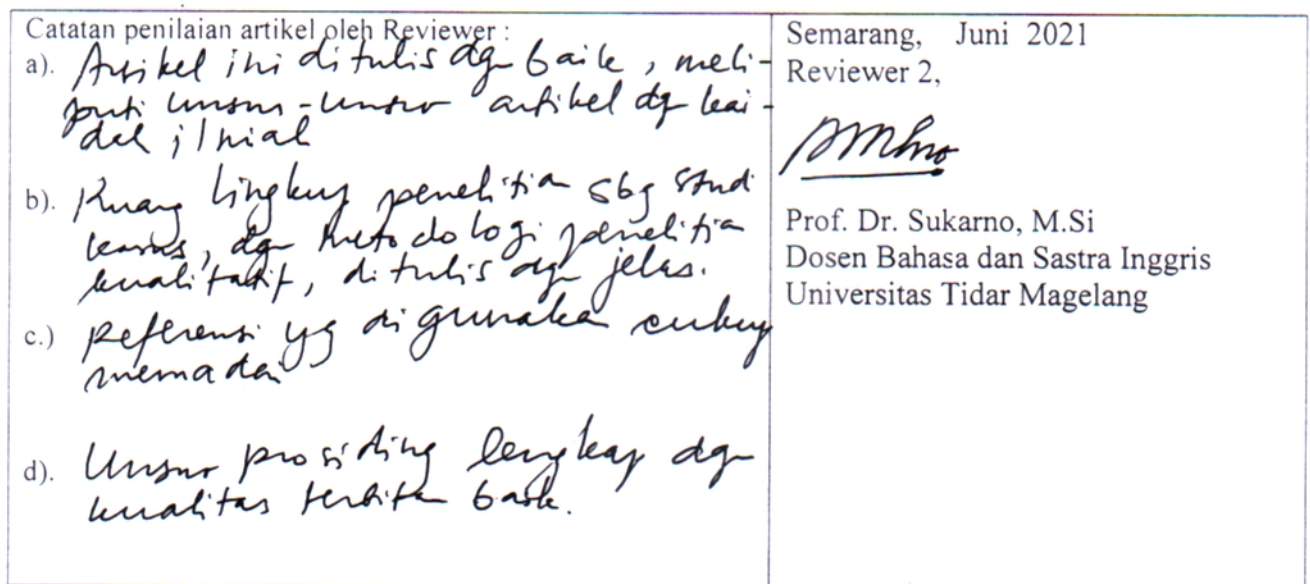 Catatan penilaian artikel oleh Reviewer :
a). Artikel ini ditulis dgn baik, meli-
puti unsur-unsur artikel dg kai-
dah ilmiah
b). Ruang lingkup penelitian sbg studi
kasus, dgn metodologi penelitian
kualitatif, ditulis dgn jelas.
c.) Referensi yg digunakan cukup
memadai
d). Unsur prosiding lengkap dgn
kualitas terbitan baik.
Semarang, Juni 2021
Reviewer 2,
Prof. Dr. Sukarno, M.Si
Dosen Bahasa dan Sastra Inggris
Universitas Tidar Magelang